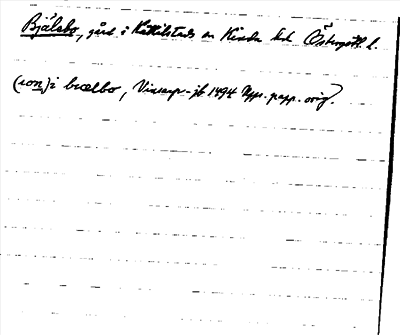 Bjälebo, gård i Kättilstads sn Kinda hd Östergötl. l.
(con) i bælbo, Vinarp-jb 1494 Upps. papp. orig.